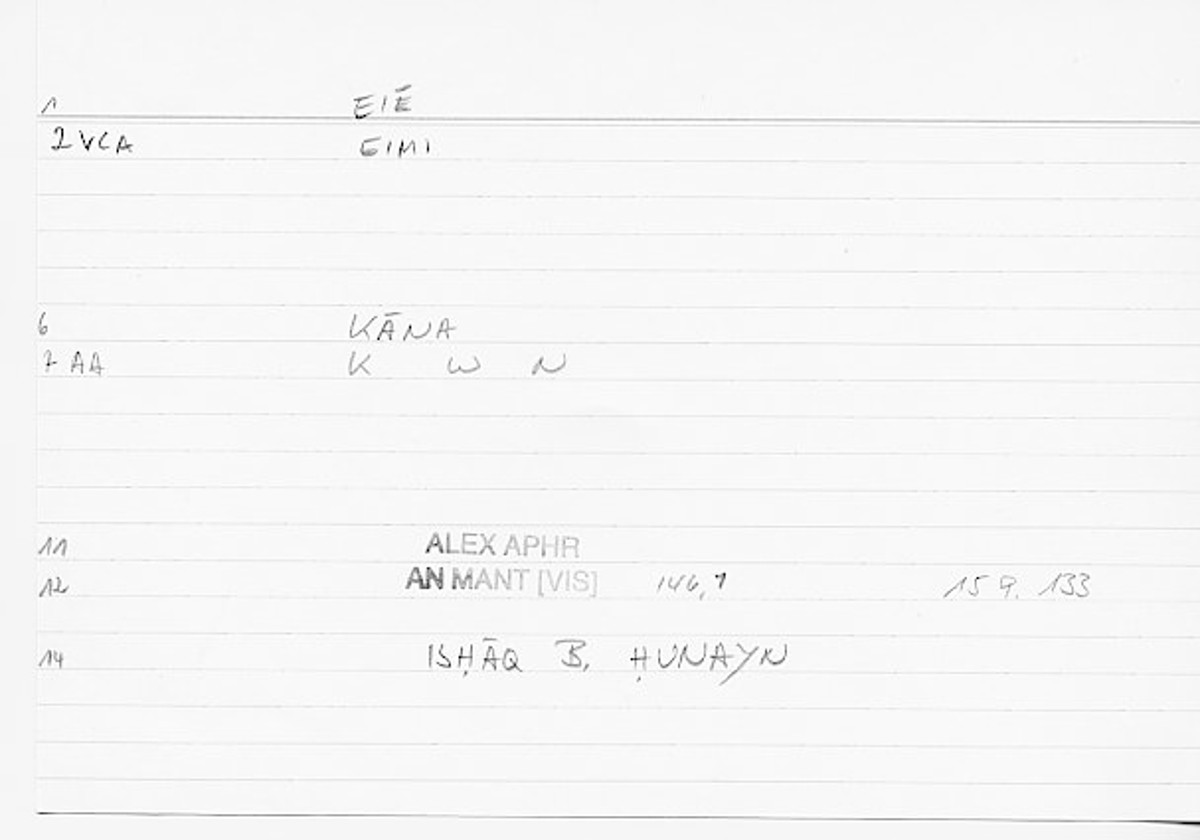 1 EIĒ
2 VCA EIMI
6 KĀNA
7 AA K W N
11 ALEX APHR
12 AN MANT [VIS] 146,1 159. 133
14 ISḤĀQ B. ḤUNAYN